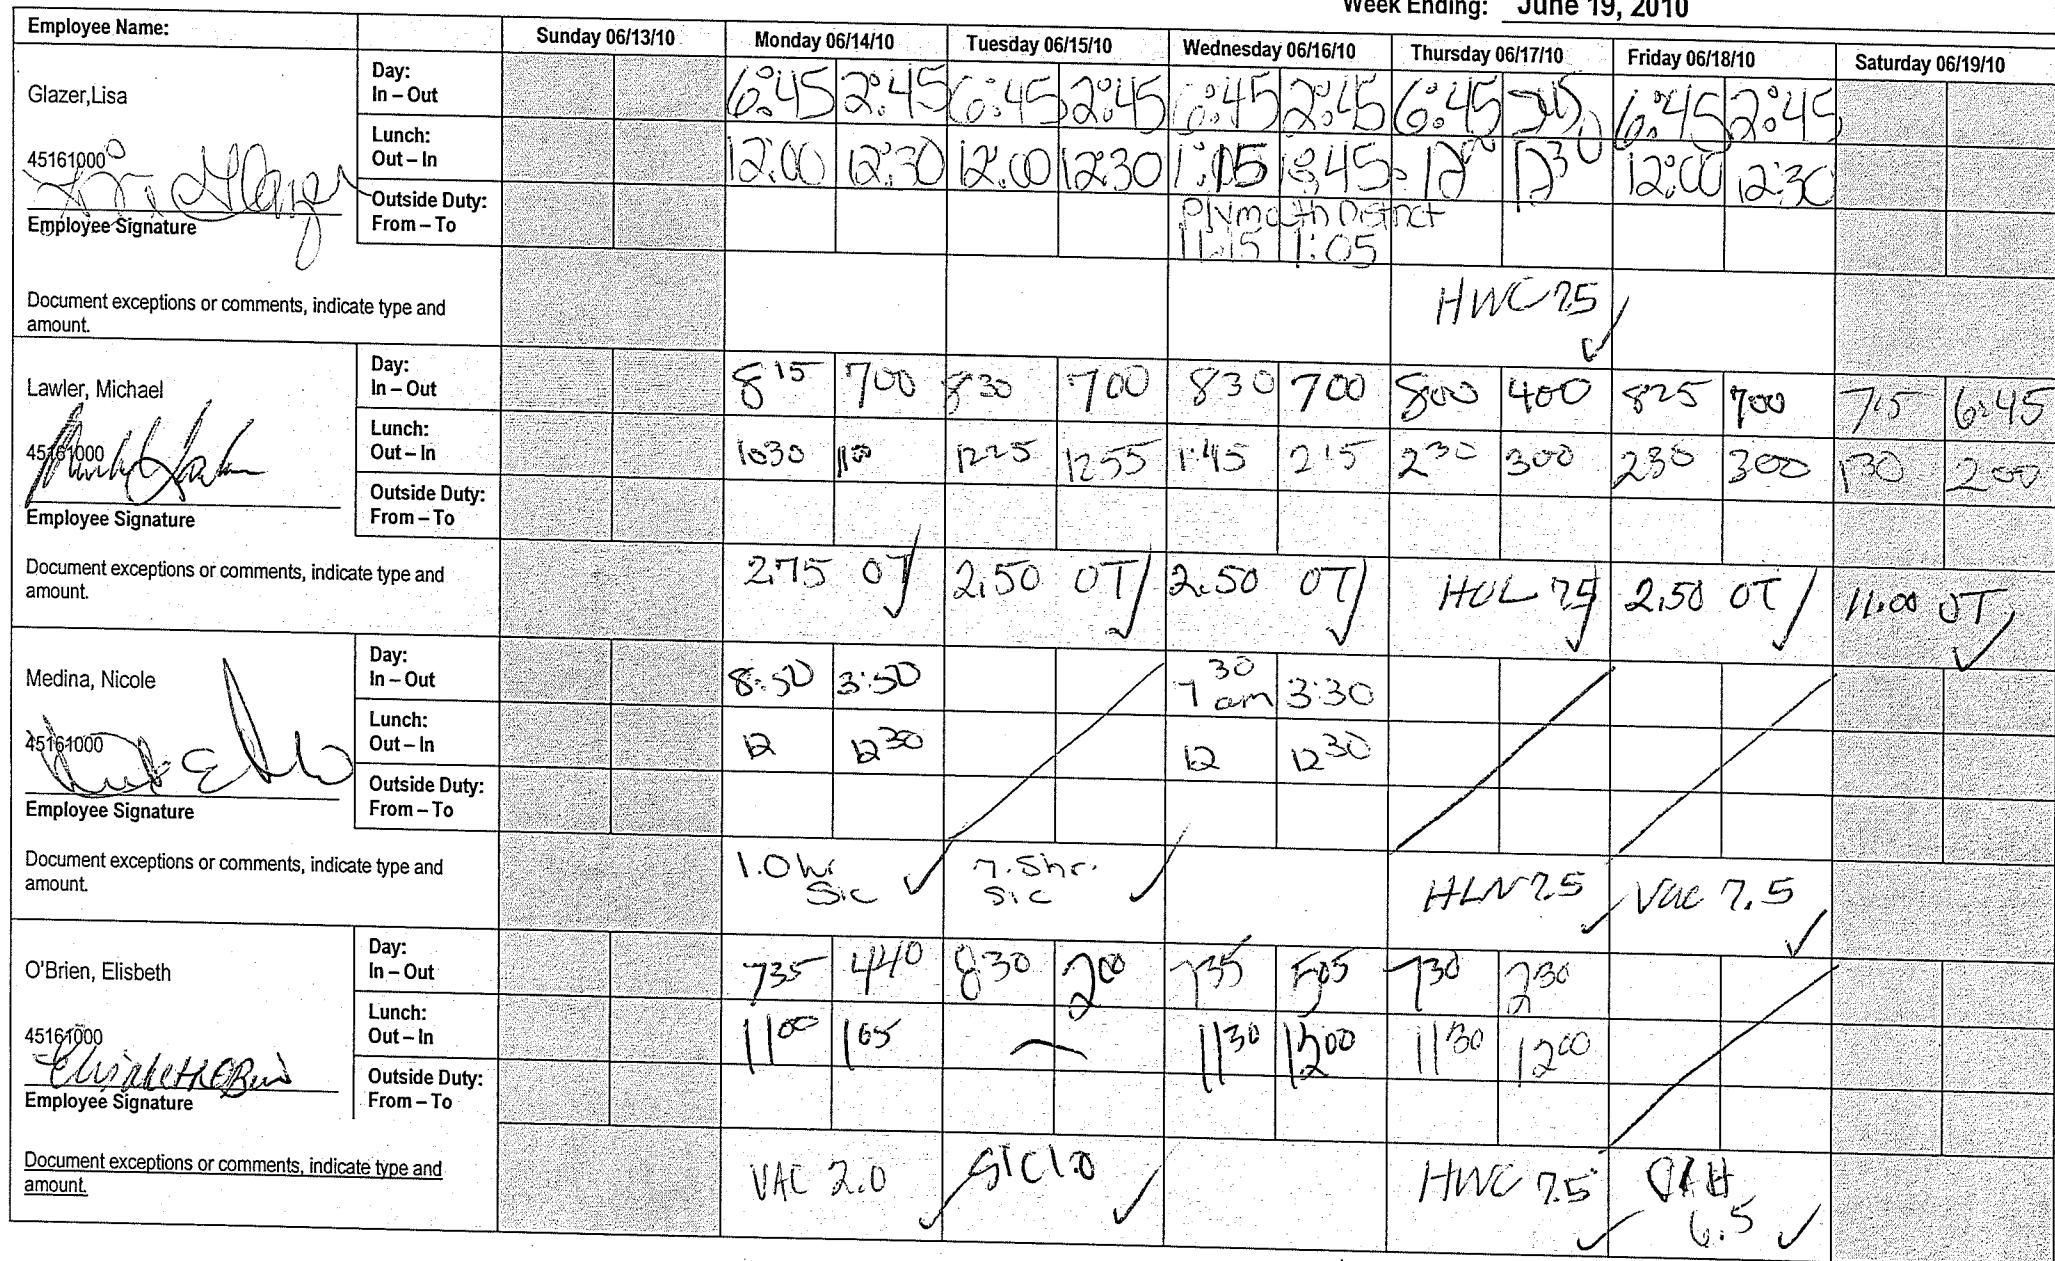 Week Ending: June 19, 2010
Employee Name: Sunday 06/13/10 Monday 06/14/10 Tuesday 06/15/10 Wednesday 06/16/10 Thursday 06/17/10 Friday 06/18/10 Saturday 06/19/10
Glazer,Lisa
Day:
In – Out 6:45 2:45 6:45 2:45 6:45 2:45 6:45 6:45 2:45
45161000
Lunch:
Out – In 12:00 12:30 12:00 12:30 1:15 1:45 12 12 30 12:00 12:30
Employee Signature
Outside Duty:
From – To Plymouth District
11:15 1:05
Document exceptions or comments, indicate type and
amount. HWC 7.5
Lawler, Michael
Day:
In – Out 8 15 700 830 700 830 700 800 400 825 700 715 6:45
45161000
Lunch:
Out – In 1030 1100 1225 1255 1:45 215 230 300 230 300 130 200
Employee Signature
Outside Duty:
From – To
Document exceptions or comments, indicate type and
amount. 2.75 OT 2.50 OT 2.50 OT HOL 7.5 2.50 OT 11.00 OT
Medina, Nicole
Day:
In – Out 8:50 3:50 7 30 am 3:30
45161000
Lunch:
Out – In 12 1230 12 1230
Employee Signature
Outside Duty:
From – To
Document exceptions or comments, indicate type and
amount. 1.0 hr Sic 7.5hr. Sic 7.5 Vac 7.5
O'Brien, Elisbeth
Day:
In – Out 735 440 830 200 735 505 730 230
45161000
Lunch:
Out – In 1100 105 1130 1200 1130 1200
Employee Signature
Outside Duty:
From – To
Document exceptions or comments, indicate type and
amount. VAC 2.0 SIC 1.0 HWC 7.5 6.5